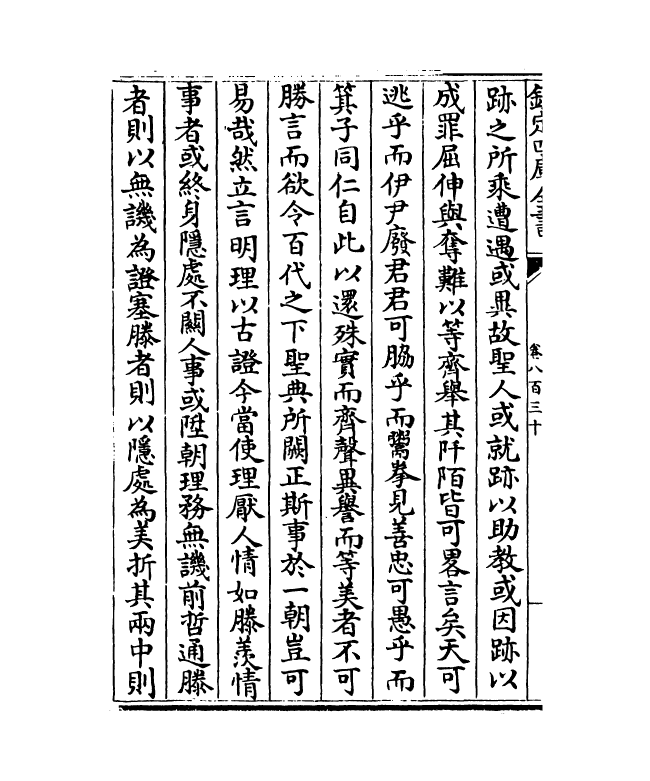 欽定四庫全書
卷八百三十
跡之所乘遭遇或異故聖人或就跡以助教或因跡以
成罪屈伸與奪難以等齊舉其阡陌皆可畧言矣天可
逃乎而伊尹廢君君可脇乎而鬻拳見善忠可愚乎而
箕子同仁自此以還殊實而齊聲異譽而等美者不可
勝言而欲令百代之下聖典所闕正斯事於一朝豈可
易哉然立言明理以古證今當使理厭人情如滕羨情
事者或終身隱處不關人事或陞朝理務無譏前哲通滕
者則以無譏為證塞滕者則以隱處為美折其兩中則